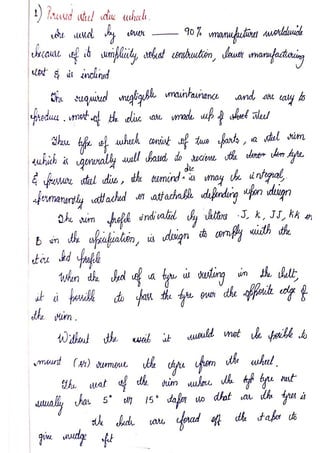 1) Pressed steel disc wheel.
are used by over — 90% manufactures worldwide
because of its simplicity, robust construction, lower manufacturing
cost & is inclined
The required negligible maintainence and are easy to
produce. most of the disc are made up of sheet steel
These type of wheels consist of two parts, a steel rim
which is generally well based to recieve the tyre
& pressure steel disc, the rim disc may be integral,
permanently attached or attachable depending upon design
The rim profile indicated by letters J, K, JJ, KK or
B in the specification, is design to comply with the
tire bed profile
When the bed of a tyre is resting in the belt,
it is possible to pass the tyre over the opposite edge of
the rim.
Without the it would not be possible to
mount (or) remove the tyre from the wheel.
The seat of the rim where the tyre rest
usually has 5° or 15° taper so that as the tyres is
the beds are forced off the taper to
give wedge fit